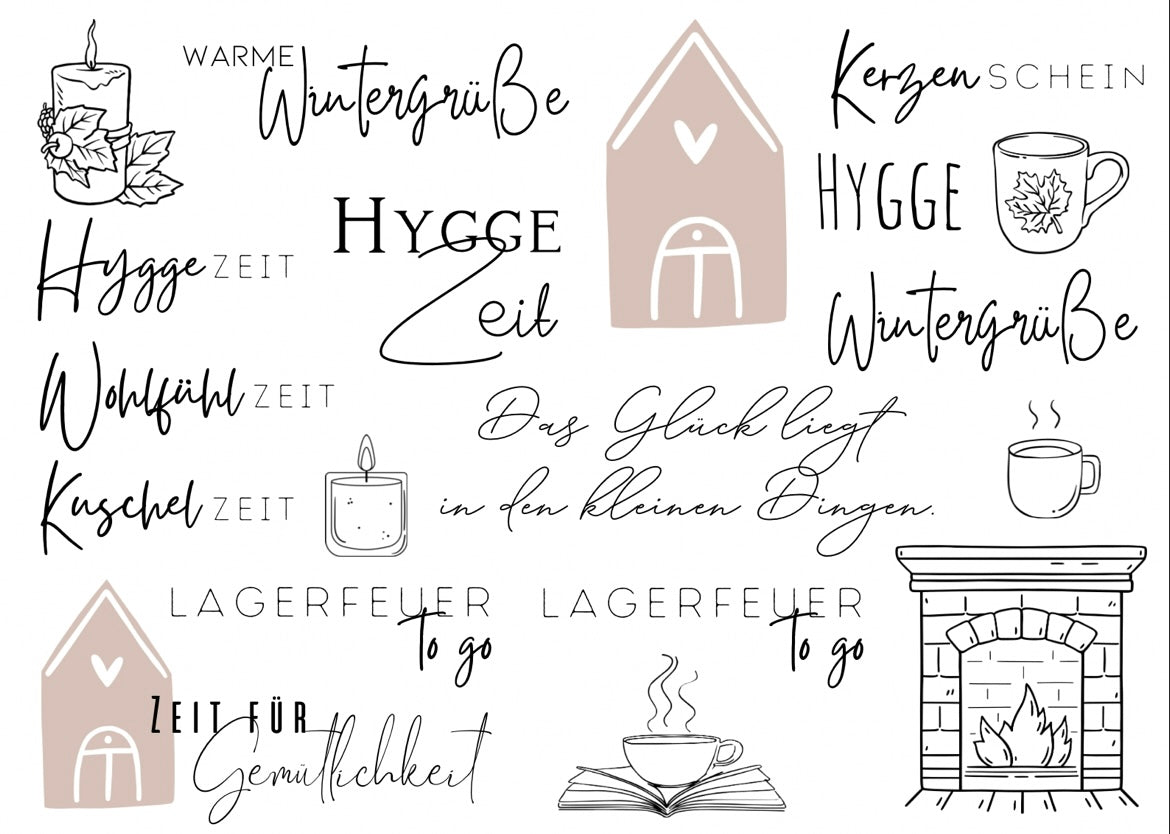 WARME
Wintergrüße
KerzenSCHEIN
HYGGE
HYGGE
Zeit
HyggeZEIT
Wintergrüße
WohlfühlZEIT
Das Glück liegt
in den kleinen Dingen.
KuschelZEIT
LAGERFEUER
to go
LAGERFEUER
to go
ZEIT FÜR
Gemütlichkeit